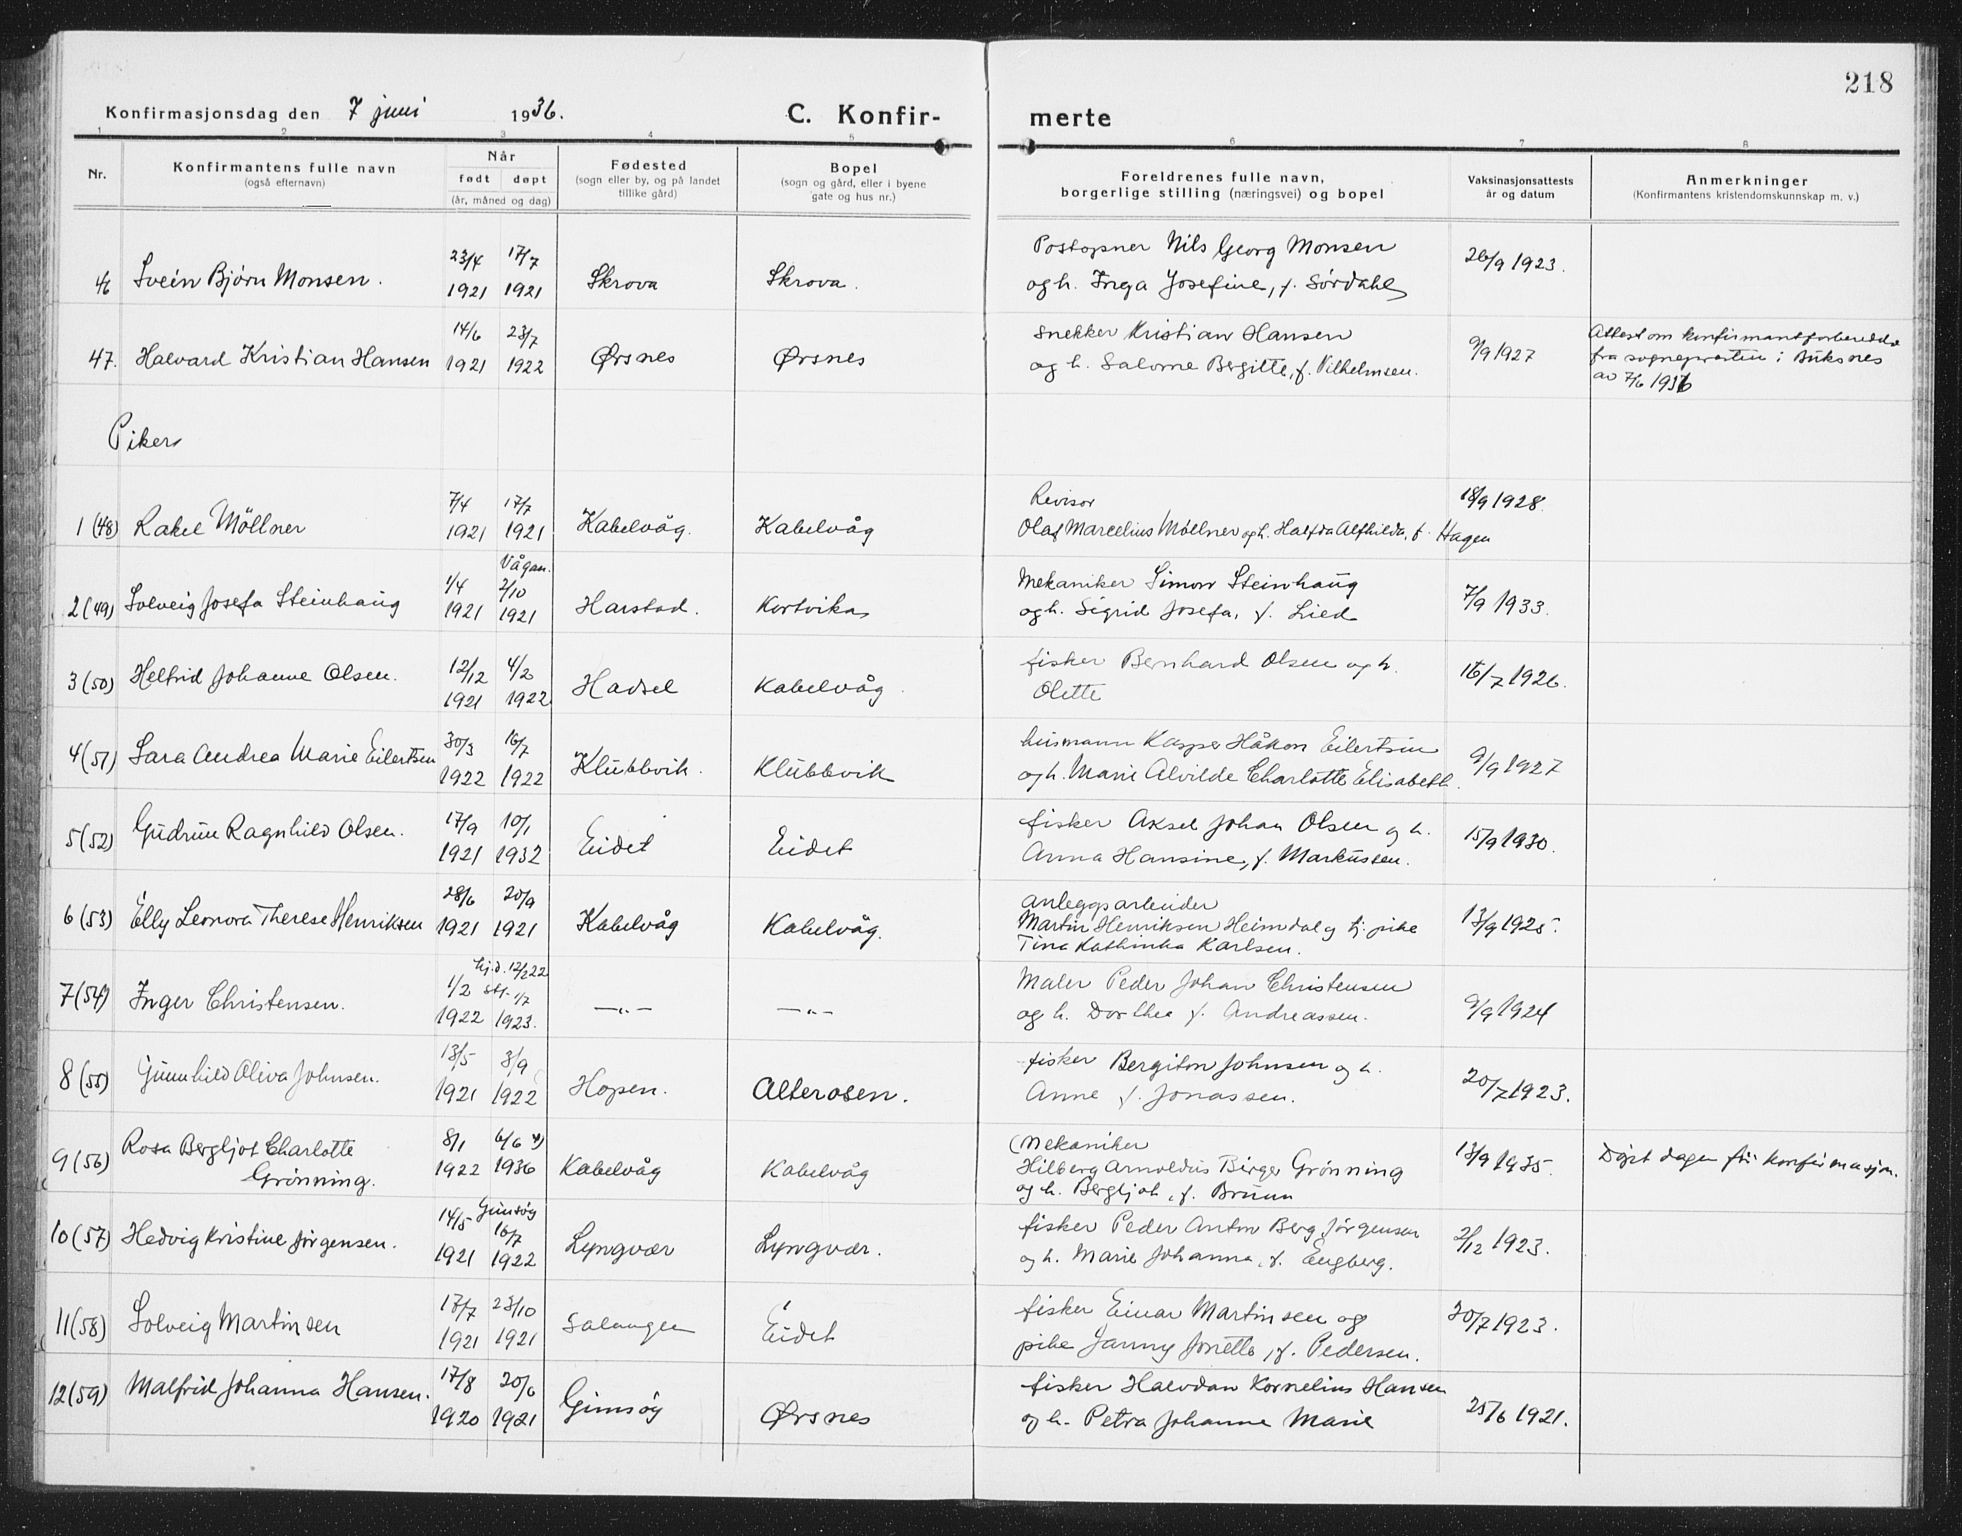 218
Konfirmasjonsdag den 7 juni 1936. C. Konfir- merte
1 2 3 4 5 6 7 8
Nr. Konfirmantens fulle navn (også efternavn) Når født døpt (år, måned og dag) Fødested (sogn eller by, og på landet tillike gård) Bopel (sogn og gård, eller i byene gate og hus nr.) Foreldrenes fulle navn, borgerlige stilling (næringsvei) og bopel Vaksinasjonsattests år og datum Anmerkninger (Konfirmantens kristendomskunnskap m. v.)
23/4 17/7 Postopner Nils Georg Monsen 26/9 1923.
46 Svein Bjørn Monsen. 1921 1921 Skrova Skrova. og h. Inga Josefine, f. Sørdahl
14/6 23/7 snekker Kristian Hansen Attest om konfirmantforberedelse
47. Halvard Kristian Hansen 1921 1922 Ørsnes Ørsnes og h. Salome Bergitte, f. Vilhelmsen. 9/9 1927 fra sognepresten i Buksnes
av 7/6 1936
Piker
7/4 17/7 Revisor 18/9 1928.
1 (48) Rakel Möllner 1921 1921 Kabelvåg. Kabelvåg Olaf Marcelius Møllner og h. Halfda Alfhilda, f. Hagen
Vågan.
1/4 2/10 Mekaniker Simon Steinhaug
2 (49) Solveig Josefa Steinhaug 1921 1921 Harstad. Kortvika og h. Sigrid Josefa, f. Lied 7/9 1933.
12/12 4/2 fisker Bernhard Olsen og h.
3 (50) Helfrid Johanne Olsen. 1921 1922 Hadsel Kabelvåg. Olette 16/7 1926.
30/3 16/7 husmann Kasper Håkon Eilertsen
4 (51) Sara Andrea Marie Eilertsen 1922 1922 Klubbvik. Klubbvik og h. Marie Alvilde Charlotte Elisabeth. 9/9 1927
17/9 10/1 fisker Aksel Johan Olsen og h.
5 (52) Gudrun Ragnhild Olsen. 1921 1932 Eidet Eidet Anna Hansine, f. Markussen. 15/9 1930.
28/6 20/9 anleggsarbeider
6 (53) Elly Leonora Therese Henriksen 1921 1921 Kabelvåg Kabelvåg. Martin Henriksen Heimdal og pike 13/9 1925.
Tina Kathinka Karlsen.
hj.d. 12/2 22
1/2 st. 1/7 Maler Peder Johan Christensen
7 (54) Inger Christensen. 1922 1923. —"— —"— og h. Dorthea f. Andreassen. 9/9 1924
13/5 3/9 fisker Bergiton Johnsen og h.
8 (55) Gunnhild Oliva Johnsen. 1921 1922 Hopen. Alterosen. Anne f. Jonassen. 20/7 1923.
Rosa Bergljot Charlotte 8/1 6/6 (mekaniker
9 (56) Grönning. 1922 1936 Kabelvåg Kabelvåg Hilberg Arnoldus Birger Grönning 13/9 1935. Døpt dagen før konfirmasjon.
og h. Bergljot, f. Bruun
14/5 Gimsöy 16/7 fisker Peder Anton Berg Jørgensen
10 (57) Hedvig Kristine Jörgensen. 1921 1922 Lyngvær Lyngvær. og h. Marie Johanna, f. Engberg. 2/12 1923.
17/7 23/10 fisker Einar Martinsen og
11 (58) Solveig Martinsen 1921 1921 Salangen Eidet pike Janny Jonette, f. Pedersen. 30/7 1923.
17/8 20/6 fisker Halvdan Kornelius Hansen
12 (59) Malfrid Johanna Hansen. 1920 1921 Gimsöy Ørsnes og h. Petra Johanne Marie 25/6 1921.